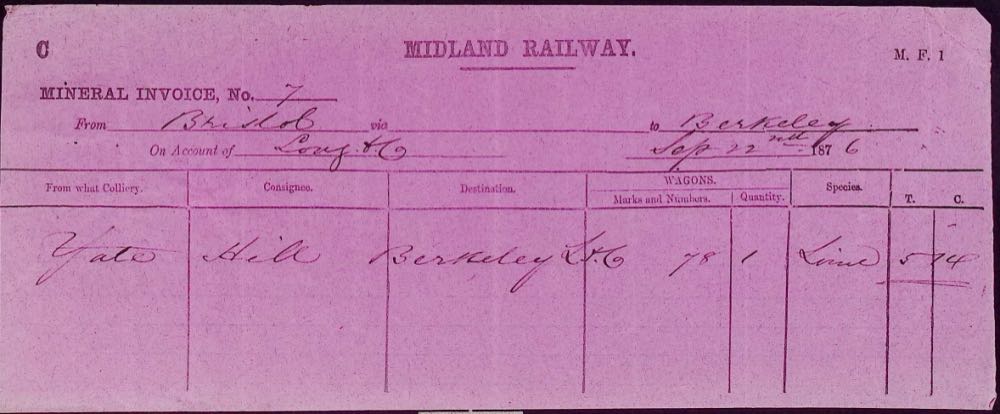 C MIDLAND RAILWAY. M. F. 1
MINERAL INVOICE, No. 7
From Bristol via to Berkeley
On Account of Long & Co Sep 22nd 1876
From what Colliery. Consignee. Destination. WAGONS. Species.
Marks and Numbers. Quantity. T. C.
Yate Hill Berkeley L & C 78 1 Lime 5 14